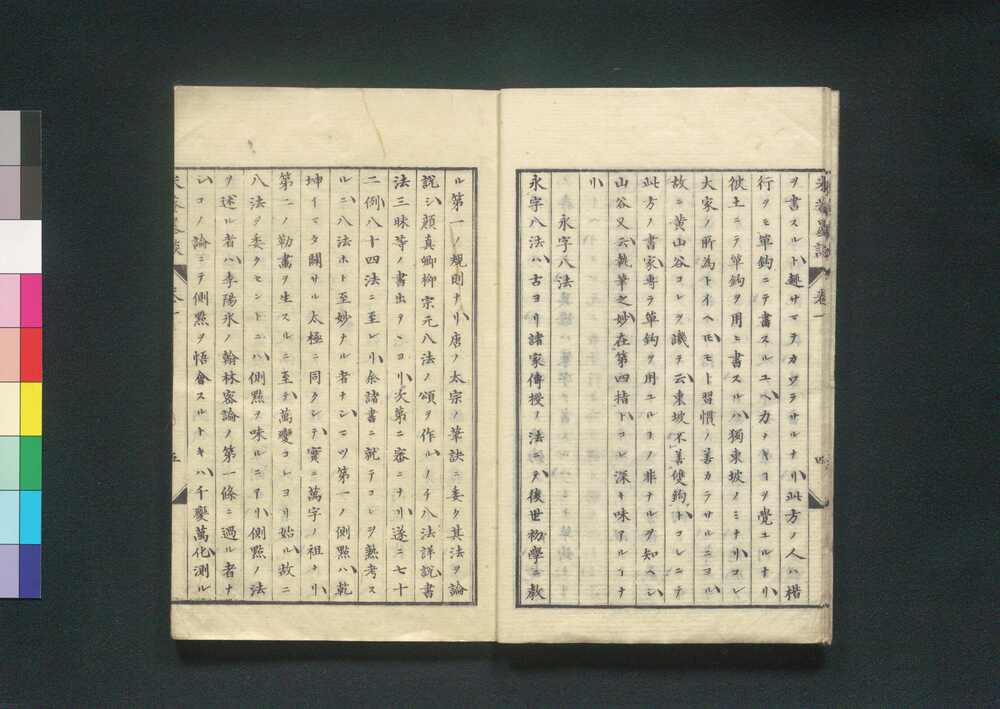 ヲ書スルト趣サマテカワラサルナリ此方ノ人ハ楷
行タモ単鈎ニテ書スルユヘ力ナキコヲ覺ユルナリ
彼土ニテ単鈎ヲ用ヒ書スルハ獨東坡ノミナリコレ
大家ノ所為トイヘ𪜈モト習慣ノ善カラサルニヨル
故ニ黄山谷コレヲ譏テ云東坡不善雙鈎トコレニテ
此方ノ書家専ラ単鈎ヲ用ユルコノ非ナルヲ知ヘシ
山谷又云執筆之妙在第四指トコレ深キ味アルイナ
リ
永字八法
永字八法ハ古ヨリ諸家傳授ノ法ニテ後世初學ニ教
ル第一ノ規則ナリ唐ノ太宗ノ筆訣ニ委ク其法ヲ論
説シ顔真卿柳宗元八法ノ頌ヲ作ルノチ八法詳説書
法三昧等ノ書出テンヨリ次第ニ審ニナリ遂ニ七十
二例八十四法ニ至レリ余諸書ニ就テコレヲ熟考ス
ルニ八法ホト至妙ナル者ナシマツ第一ノ側點ハ乾
坤イマタ闢サル太極ニ同クシテ實ニ萬字ノ祖ナリ
第二ノ勒畫ヲ生スルニ至テ萬變コレヨリ始ル故ニ
八法ヲ委クセントニハ側點ヲ味ルニアリ側點ノ法
ヲ述ル者ハ李陽氷ノ翰林密論ノ第一條ニ過ル者ナ
シコノ論ニテ側點ヲ悟會スルトキハ千變萬化測ル